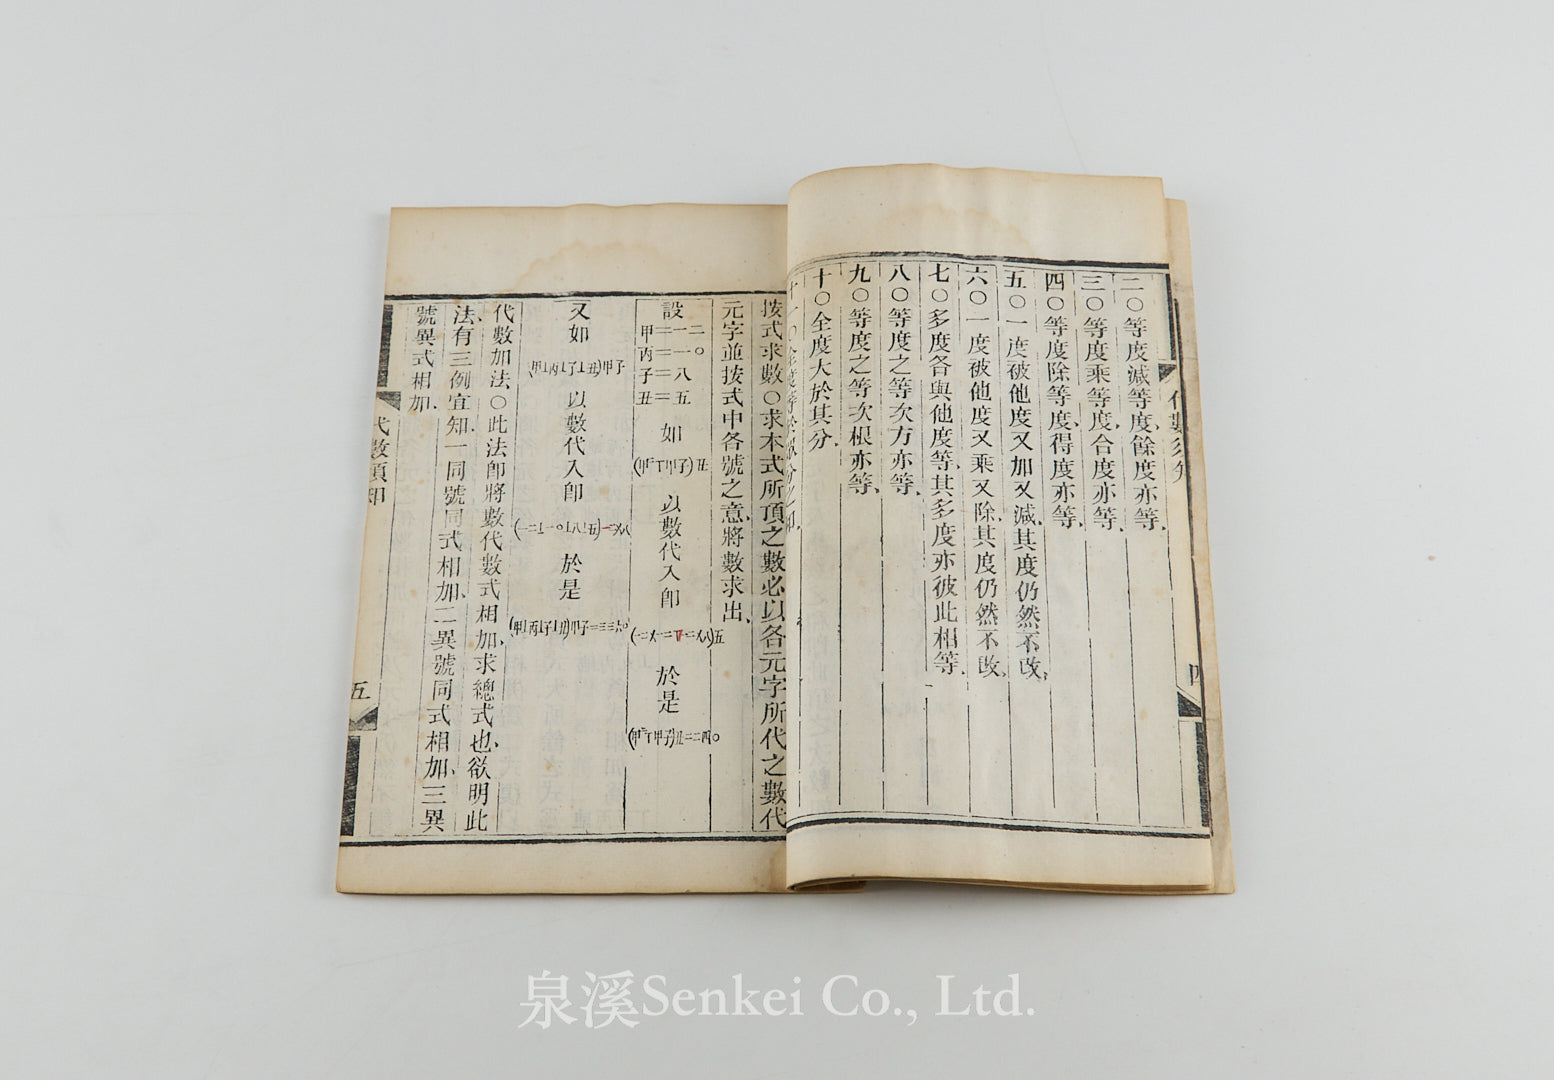 二〇等度減等度、餘度亦等、
三〇等度乘等度、合度亦等、
四〇等度除等度、得度亦等、
五〇一度被他度又加又減、其度仍然不改、
六〇一度被他度又乘又除、其度仍然不改、
七〇多度各與他度等、其多度亦彼此相等、
八〇等度之等次方亦等、
九〇等度之等次根亦等、
十〇全度大於其分、
四
按式求數〇求本式所頂之數必以各元字所代之數代
元字並按式中各號之意、將數求出、
設 甲二二 丙二一〇 子二八 丑二五 如 以數代入卽 於是
又如 以數代入卽 於是
代數加法、〇此法卽將數代數式相加、求總式也、欲明此
法有三例宜知一同號同式相加、二異號同式相加、三異
號異式相加、
代數須知
五
泉溪Senkei Co., Ltd.